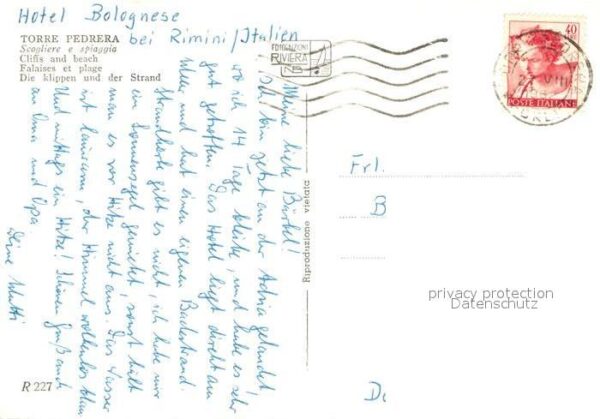 Hotel Bolognese
bei Rimini/Italien
TORRE PEDRERA
Scogliere e spiaggia
Cliffs and beach
Falaises et plage
Die klippen und der Strand
FOTOEDIZIONI
RIVIERA
40
POSTE ITALIANE
Meine liebe Bärbel!
bin jetzt an der Adria gelandet,
wo ich 14 Tage bleibe, und habe es sehr
gut getroffen. Das Hotel liegt direkt am
und hat einen eigenen Badestrand.
Strandkörbe gibt es nicht, ich habe mir
ein Sonnensegel gemietet, sonst hält
man es vor Hitze nicht aus. Das Wasser
ist lauwarm, der Himmel wolkenlos blau
Und mittags ein Hitze! Schönen Gruß auch
an Oma und Opa
Deine Mutti
Riproduzione vietata
Frl.
B
privacy protection
Datenschutz
R 227